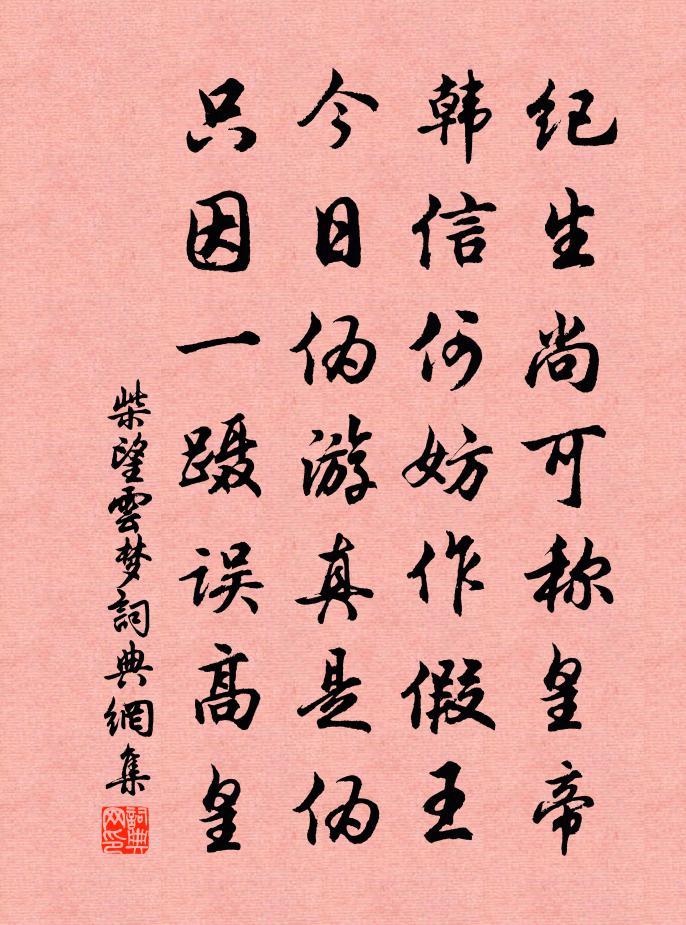 纪生尚可称皇帝
韩信何妨作假王
今日伪游真是伪
只因一蹑误高皇
柴望雲梦詞典網集
詞典网印